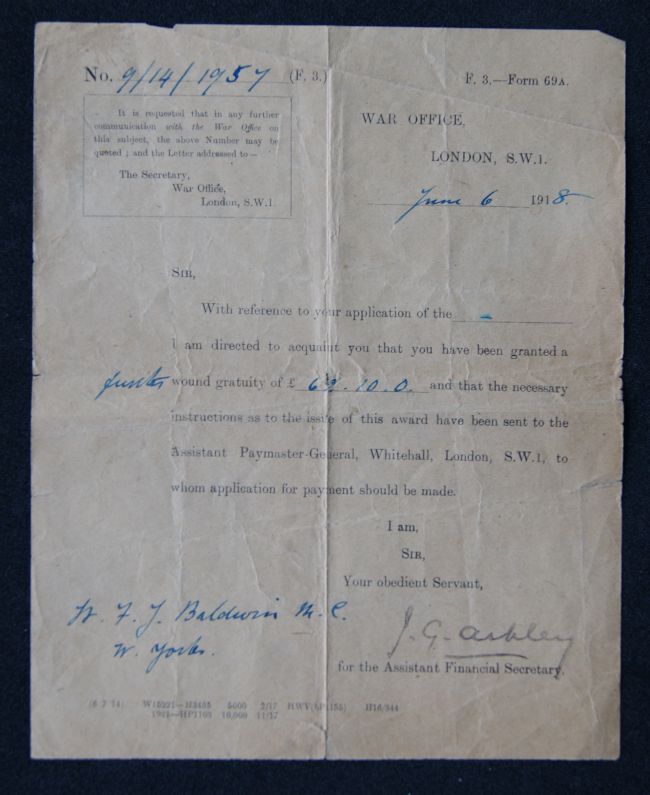 No. 9/14/1957 (F. 3.)
F. 3.—Form 69A.
It is requested that in any further
communication with the War Office on
this subject, the above Number may be
quoted; and the Letter addressed to —
The Secretary,
War Office,
London, S.W.1.
WAR OFFICE,
LONDON, S.W.1.
June 6 1918.
SIR,
With reference to your application of the -
I am directed to acquaint you that you have been granted a
further wound gratuity of £ 62.10.0. and that the necessary
instructions as to the issue of this award have been sent to the
Assistant Paymaster-General, Whitehall, London, S.W.1, to
whom application for payment should be made.
I am,
SIR,
Your obedient Servant,
J. G. Ashley
for the Assistant Financial Secretary.
F. J. Baldwin M.C.
W. Yorks.
(6 7 74) 5000 2/17 H16/344
10,000 11/17